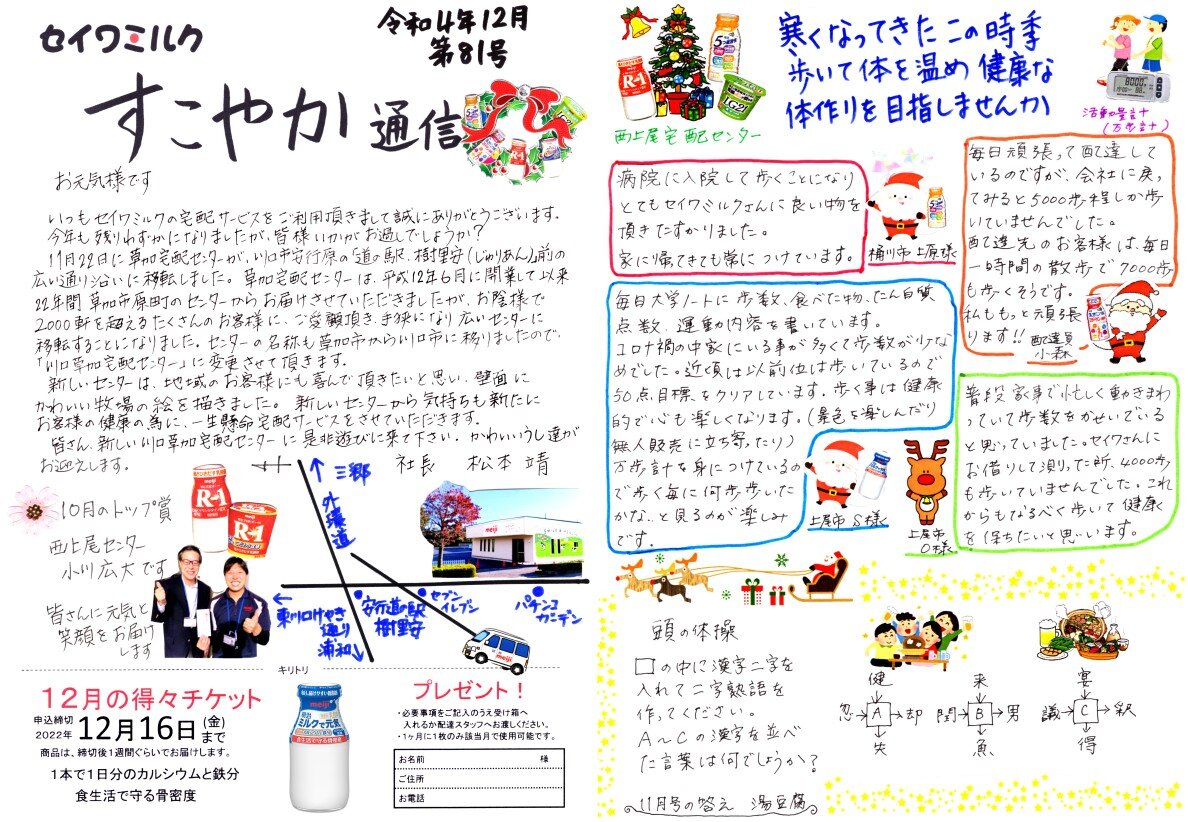 セイワミルク
令和4年12月
第81号
すこやか通信
お元気様です
いつもセイワミルクの宅配サービスをご利用頂きまして誠にありがとうございます。
今年も残りわずかになりましたが、皆様いかがお過しでしょうか?
11月22日に草加宅配センターが、川口市安行原の「道の駅、樹里安(じゅりあん)」前の
広い通り沿いに移転しました。草加宅配センターは、平成12年6月に開業して以来
22年間草加市原町のセンターからお届けさせていただきましたが、お陰様で
2000軒を超えるたくさんのお客様に、ご愛顧頂き、手狭になり広いセンターに
移転することになりました。センターの名称も草加市から川口市に移りましたので、
「川口草加宅配センター」に変更させて頂きます。
新しいセンターは、地域のお客様にも喜んで頂きたいと思い、壁面に
かわいい牧場の絵を描きました。新しいセンターから気持ちも新たに
お客様の健康の為に、一生懸命宅配サービスをさせていただきます。
皆さん、新しい川口草加宅配センターに是非遊びに来て下さい。かわいいうし達が
お迎えします。
社長 松本 靖
10月のトップ賞
西上尾センター
小川広大です
皆さんに元気と
笑顔をお届け
します
meiji
R-1
R-1
三郷
外環道
東川口けやき通り
浦和
安行道の駅
樹里安
セブン
イレブン
パチンコ
ガーデン
meiji
キリトリ
12月の得々チケット
申込締切
2022年 12月16日(金)まで
商品は、締切後1週間ぐらいでお届けします。
1本で1日分のカルシウムと鉄分
食生活で守る骨密度
meiji
明治
ミルクで元気
プレゼント!
・必要事項をご記入のうえ受け箱へ
入れるか配達スタッフへお渡しください。
・1ヶ月に1枚のみ該当月で使用可能です。
お名前 様
ご住所
お電話
R-1
LG21
西上尾宅配センター
寒くなってきたこの時季
歩いて体を温め健康な
体作りを目指しませんか
8000
活動量計
(万歩計)
病院に入院して歩くことになり
とてもセイワミルクさんに良い物を
頂きたすかりました。
家に帰ってきても常につけています。
桶川市上原様
毎日頑張って配達して
いるのですが、会社に戻っ
てみると5000歩程しか歩
いていませんでした。
配達先のお客様は、毎日
一時間の散歩で7000歩
も歩くそうです。
私ももっと頑張
ります!!
配達員
小森
毎日大学ノートに歩数、食べた物、たん白質
点数、運動内容を書いています。
コロナ禍の中家にいる事が多くて歩数が少な
めでした。近頃は以前位は歩いているので
50点目標をクリアしています。歩く事は健康
的で心も楽しくなります。(景色を楽しんだり
無人販売に立ち寄ったり)
万歩計を身につけているの
で歩く毎に何歩歩いた
かな、と見るのが楽しみ
です。
上尾市 S様
普段家事で忙しく動きまわ
っていて歩数をかせいでいる
と思っていました。セイワさんに
お借りして測った所、4000歩
も歩いていませんでした。これ
からもなるべく歩いて健康
を保ちたいと思います。
上尾市
O様
頭の体操
□の中に漢字二字を
入れて二字熟語を
作ってください。
A~Cの漢字を並べ
た言葉は何でしょうか?
健
忍→A→却
失
来
聞→B→男
魚
宴
議→C→釈
得
11月号の答え 湯豆腐